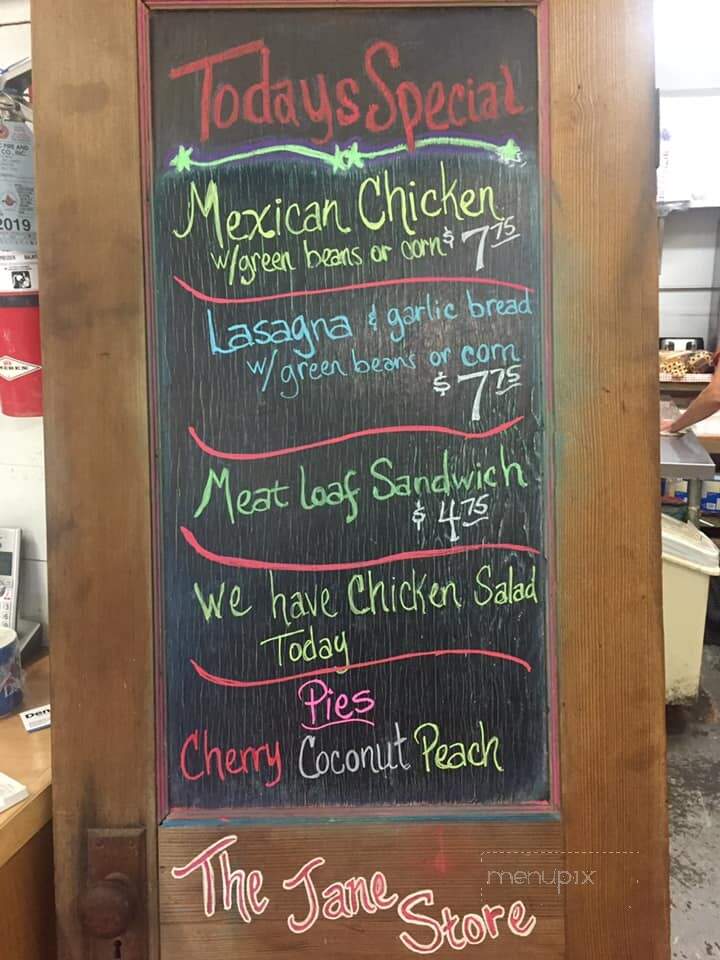 Todays Special
Mexican Chicken
w/green beans or corn $7.75
Lasagna & garlic bread
w/green beans or corn
$7.75
Meat Loaf Sandwich
$4.75
We have Chicken Salad
Today
Pies
Cherry Coconut Peach
The Jane
Store
menupix
2019